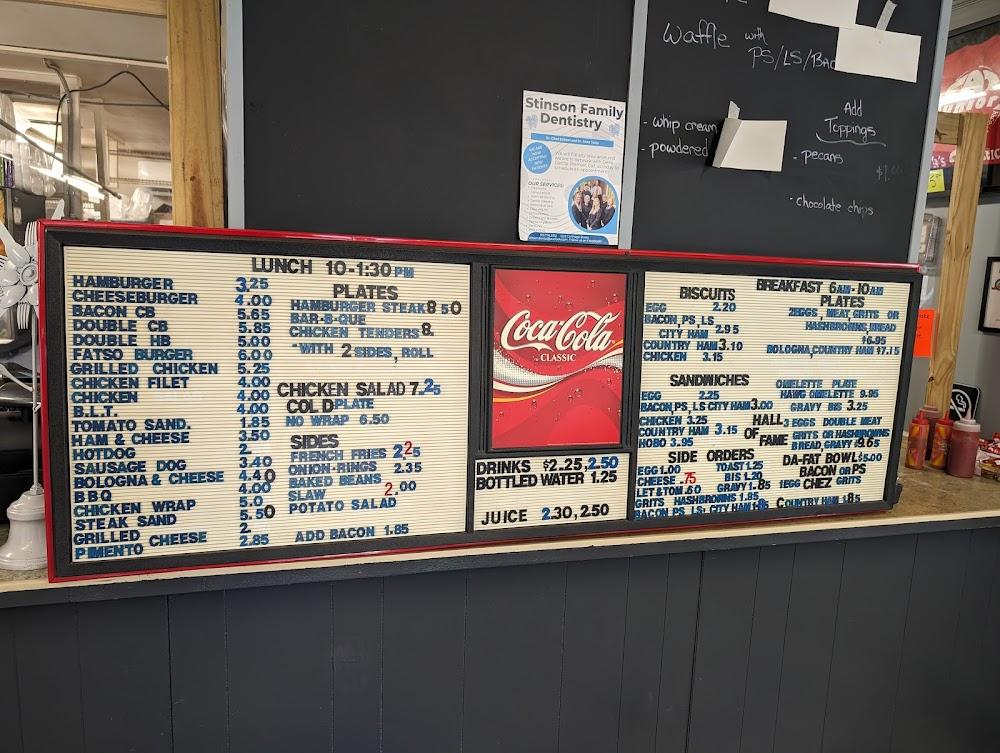 Waffle with
PS/LS/Bac
- whip cream
- powdered
Add
Toppings
- pecans
- chocolate chips
Stinson Family
Dentistry
OUR SERVICES:
LUNCH 10-1:30 PM
HAMBURGER 3.25
CHEESEBURGER 4.00
BACON CB 5.65
DOUBLE CB 5.85
DOUBLE HB 5.00
FATSO BURGER 6.00
GRILLED CHICKEN 5.25
CHICKEN FILET 4.00
CHICKEN 4.00
B.L.T. 4.00
TOMATO SAND. 1.85
HAM & CHEESE 3.50
HOTDOG 2.
SAUSAGE DOG 3.40
BOLOGNA & CHEESE 4.40
BBQ 4.00
CHICKEN WRAP 5.50
STEAK SAND
GRILLED CHEESE 2.
PIMENTO 2.85
PLATES
HAMBURGER STEAK 8 50
BAR-B-QUE
CHICKEN TENDERS 8.
-WITH 2 SIDES, ROLL
CHICKEN SALAD 7.25
COLD PLATE
NO WRAP 6.50
SIDES
FRENCH FRIES 2.25
ONION-RINGS 2.35
BAKED BEANS
SLAW 2.00
POTATO SALAD
ADD BACON 1.85
Coca-Cola
CLASSIC
DRINKS $2.25,2.50
BOTTLED WATER 1.25
JUICE 2.30,2.50
BISCUITS
EGG 2.20
BACON,PS,LS
CITY HAM 2.95
COUNTRY HAM 3.10
CHICKEN 3.15
SANDWICHES
EGG 2.25
BACON,PS,LS CITY HAM 3.00
CHICKEN 3.25
COUNTRY HAM 3.15
HOBO 3.95
SIDE ORDERS
EGG 1.00 TOAST 1.25
CHEESE .75 BIS 1.20
LET&TOM .60 GRAVY 1.85
GRITS HASHBROWNS 1.85
BACON PS LS CITY HAM 1.85
BREAKFAST 6AM-10AM
PLATES
2EGGS, MEAT, GRITS OR
HASHBROWNS, BREAD
$6.95
BOLOGNA,COUNTRY HAM $7.15
OMELETTE PLATE
HAWG OMELETTE 9.95
GRAVY BIS 3.25
HALL OF FAME
3 EGGS DOUBLE MEAT
GRITS OR HASHBROWNS
BREAD,GRAVY $9.65
DA-FAT BOWL $5.00
BACON OR PS
1EGG CHEZ GRITS
COUNTRY HAM 1.85